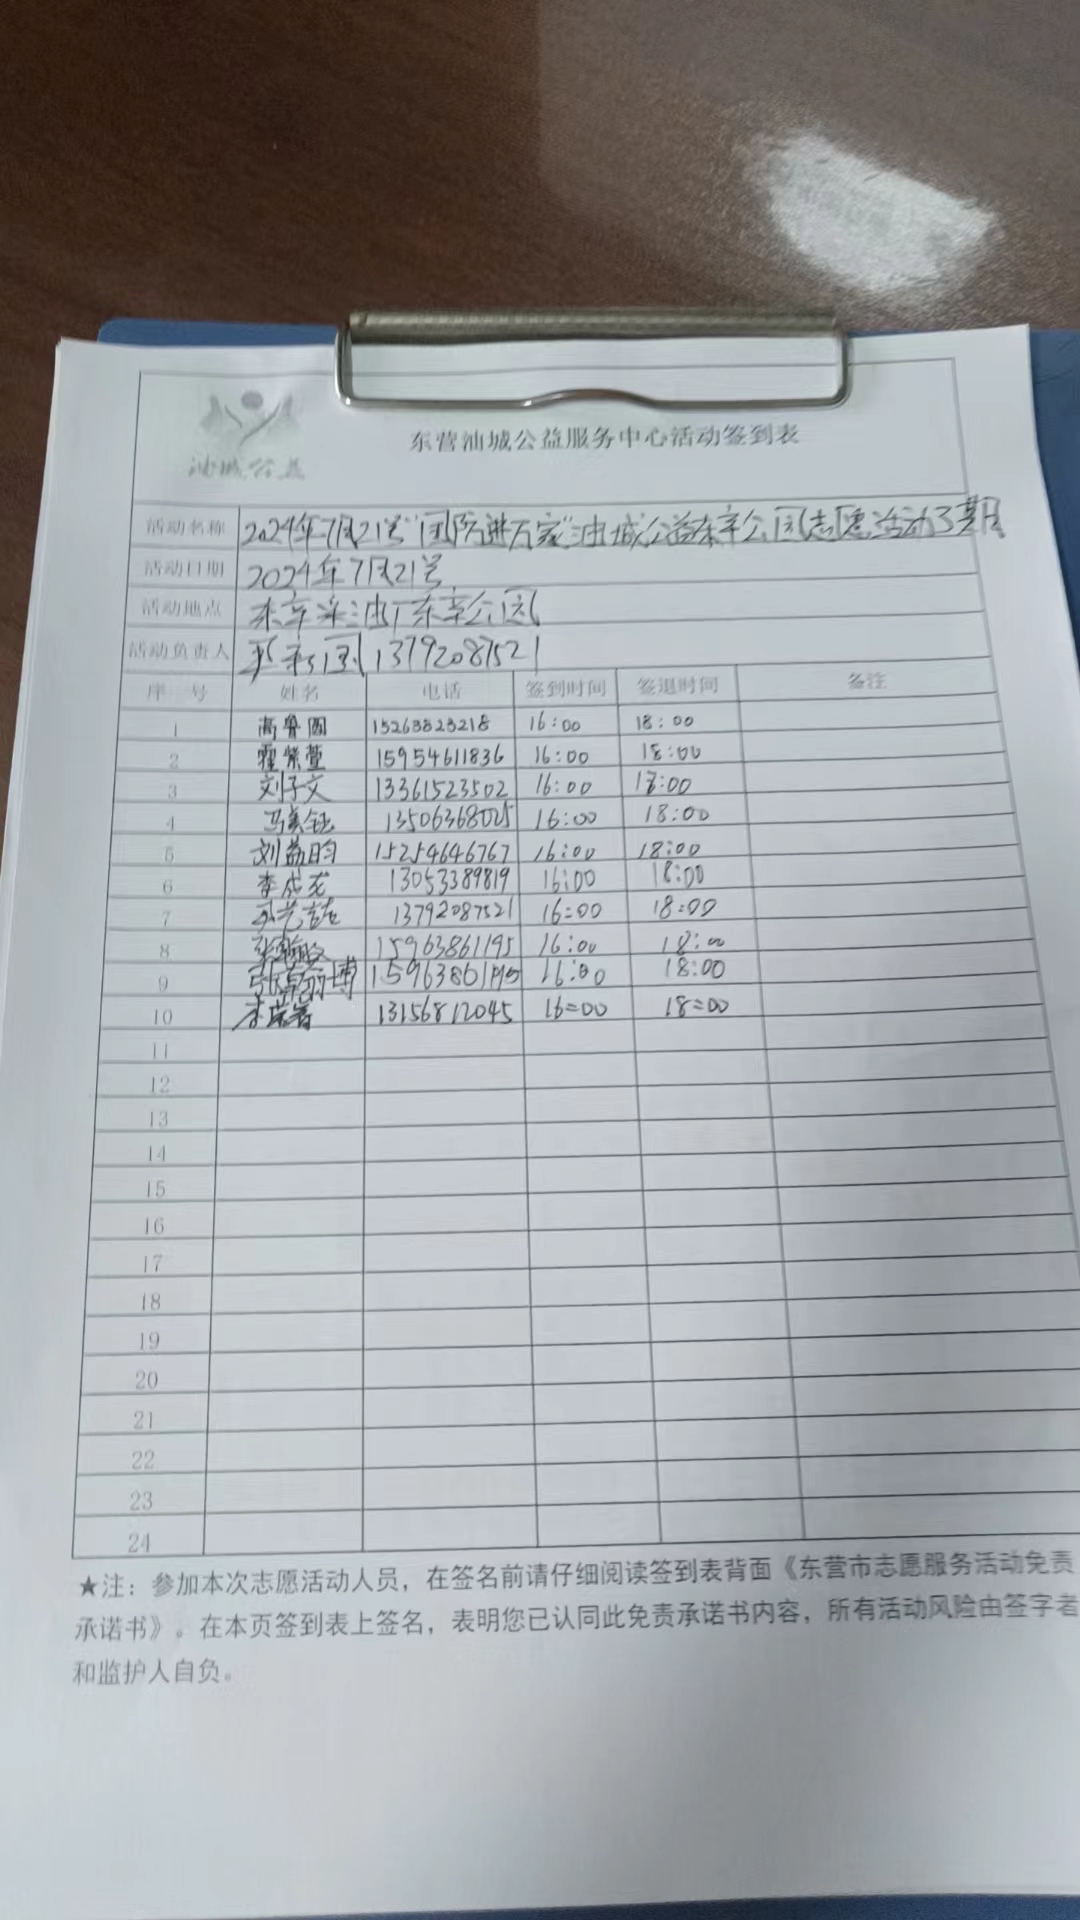 油城公益
东营油城公益服务中心活动签到表
活动名称 2024年7月21号"团队进万家"油城公益东辛公园志愿活动3期
活动日期 2024年7月21号
活动地点 东辛采油厂东辛公园
活动负责人 13792087521
序 号 姓名 电话 签到时间 签退时间 备注
1 高鲁圆 15263823218 16:00 18:00
2 霍紫萱 15954611836 16:00 18:00
3 刘子文 13361523502 16:00 18:00
4 马美钰 13506368025 16:00 18:00
5 刘荔昀 15254646767 16:00 18:00
6 李成龙 13053389819 16:00 18:00
7 13792087521 16:00 18:00
8 15963861195 16:00 18:00
9 博 16:00 18:00
10 13156812045 16:00 18:00
11
12
13
14
15
16
17
18
19
20
21
22
23
24
★注：参加本次志愿活动人员，在签名前请仔细阅读签到表背面《东营市志愿服务活动免责
承诺书》。在本页签到表上签名，表明您已认同此免责承诺书内容，所有活动风险由签字者
和监护人自负。